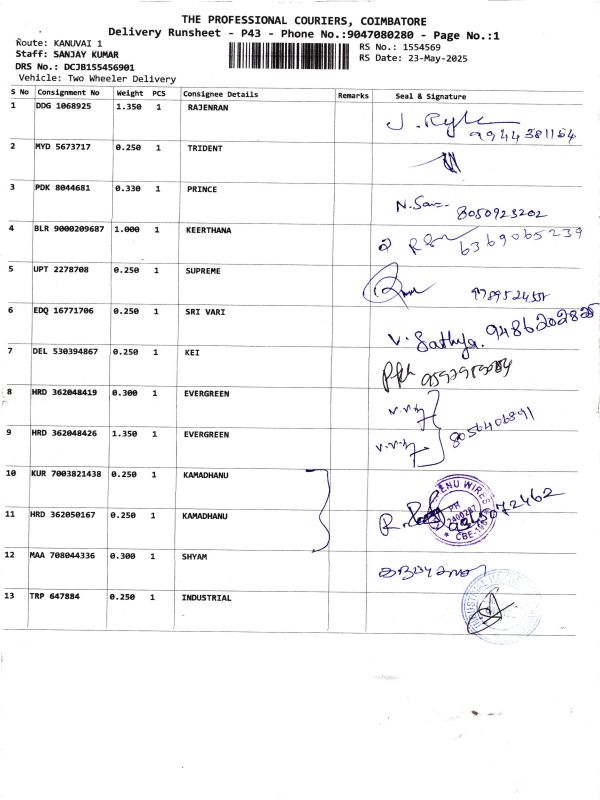 THE PROFESSIONAL COURIERS, COIMBATORE
Delivery Runsheet - P43 - Phone No.:9047080280 - Page No.:1
Route: KANUVAI 1
Staff: SANJAY KUMAR
DRS No.: DCJB155456901
Vehicle: Two Wheeler Delivery
RS No.: 1554569
RS Date: 23-May-2025
S No Consignment No Weight PCS Consignee Details Remarks Seal & Signature
1 DDG 1068925 1.350 1 RAJENRAN
9944381164
2 MYD 5673717 0.250 1 TRIDENT
3 PDK 8044681 0.330 1 PRINCE
8050923202
4 BLR 9000209687 1.000 1 KEERTHANA
6369065239
5 UPT 2278708 0.250 1 SUPREME
6 EDQ 16771706 0.250 1 SRI VARI
V. Sathya. 9486202825
7 DEL 530394867 0.250 1 KEI
8 HRD 362048419 0.300 1 EVERGREEN
9 HRD 362048426 1.350 1 EVERGREEN
8056406891
10 KUR 7003821438 0.250 1 KAMADHANU
11 HRD 362050167 0.250 1 KAMADHANU
12 MAA 708044336 0.300 1 SHYAM
13 TRP 647884 0.250 1 INDUSTRIAL